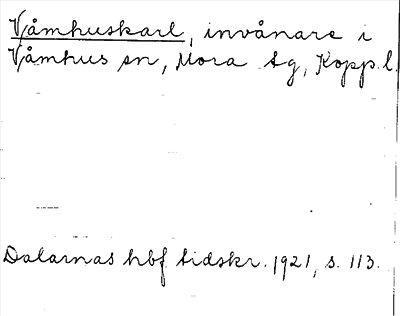 Våmhuskarl, invånare i
Våmhus sn, Mora tg, Kopp.l.
Dalarnas hbf tidskr. 1921, s. 113.